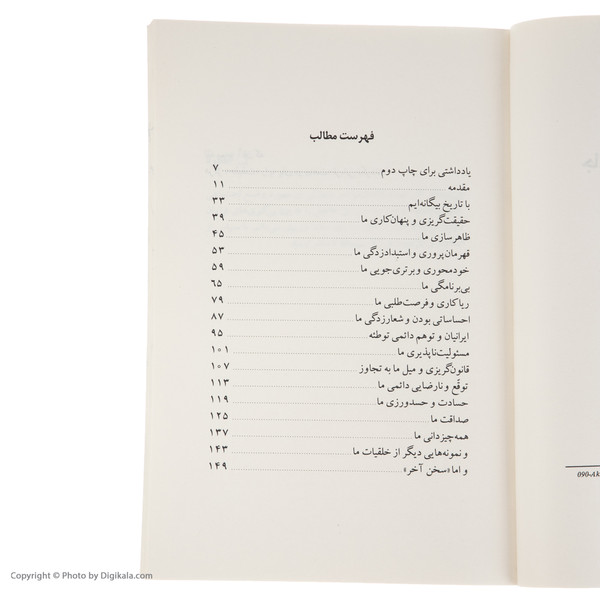 فهرست مطالب
یادداشتی برای چاپ دوم ۷
مقدمه ۱۱
با تاریخ بیگانه‌ایم ۳۳
حقیقت‌گریزی و پنهان‌کاری ما ۳۹
ظاهرسازی ما ۴۵
قهرمان‌پروری و استبدادزدگی ما ۵۳
خودمحوری و برتری‌جویی ما ۵۹
بی‌برنامگی ما ۶۵
ریاکاری و فرصت‌طلبی ما ۷۹
احساساتی بودن و شعارزدگی ما ۸۷
ایرانیان و توهم دائمی توطئه ۹۵
مسئولیت‌ناپذیری ما ۱۰۱
قانون‌گریزی و میل ما به تجاوز ۱۰۷
توقّع و نارضایی دائمی ما ۱۱۳
حسادت و حسدورزی ما ۱۱۹
صداقت ما ۱۲۵
همه‌چیزدانی ما ۱۳۷
و نمونه‌هایی دیگر از خلقیات ما ۱۴۳
و اما «سخن آخر» ۱۴۹
090-Ak
Copyright © Photo by Digikala.com